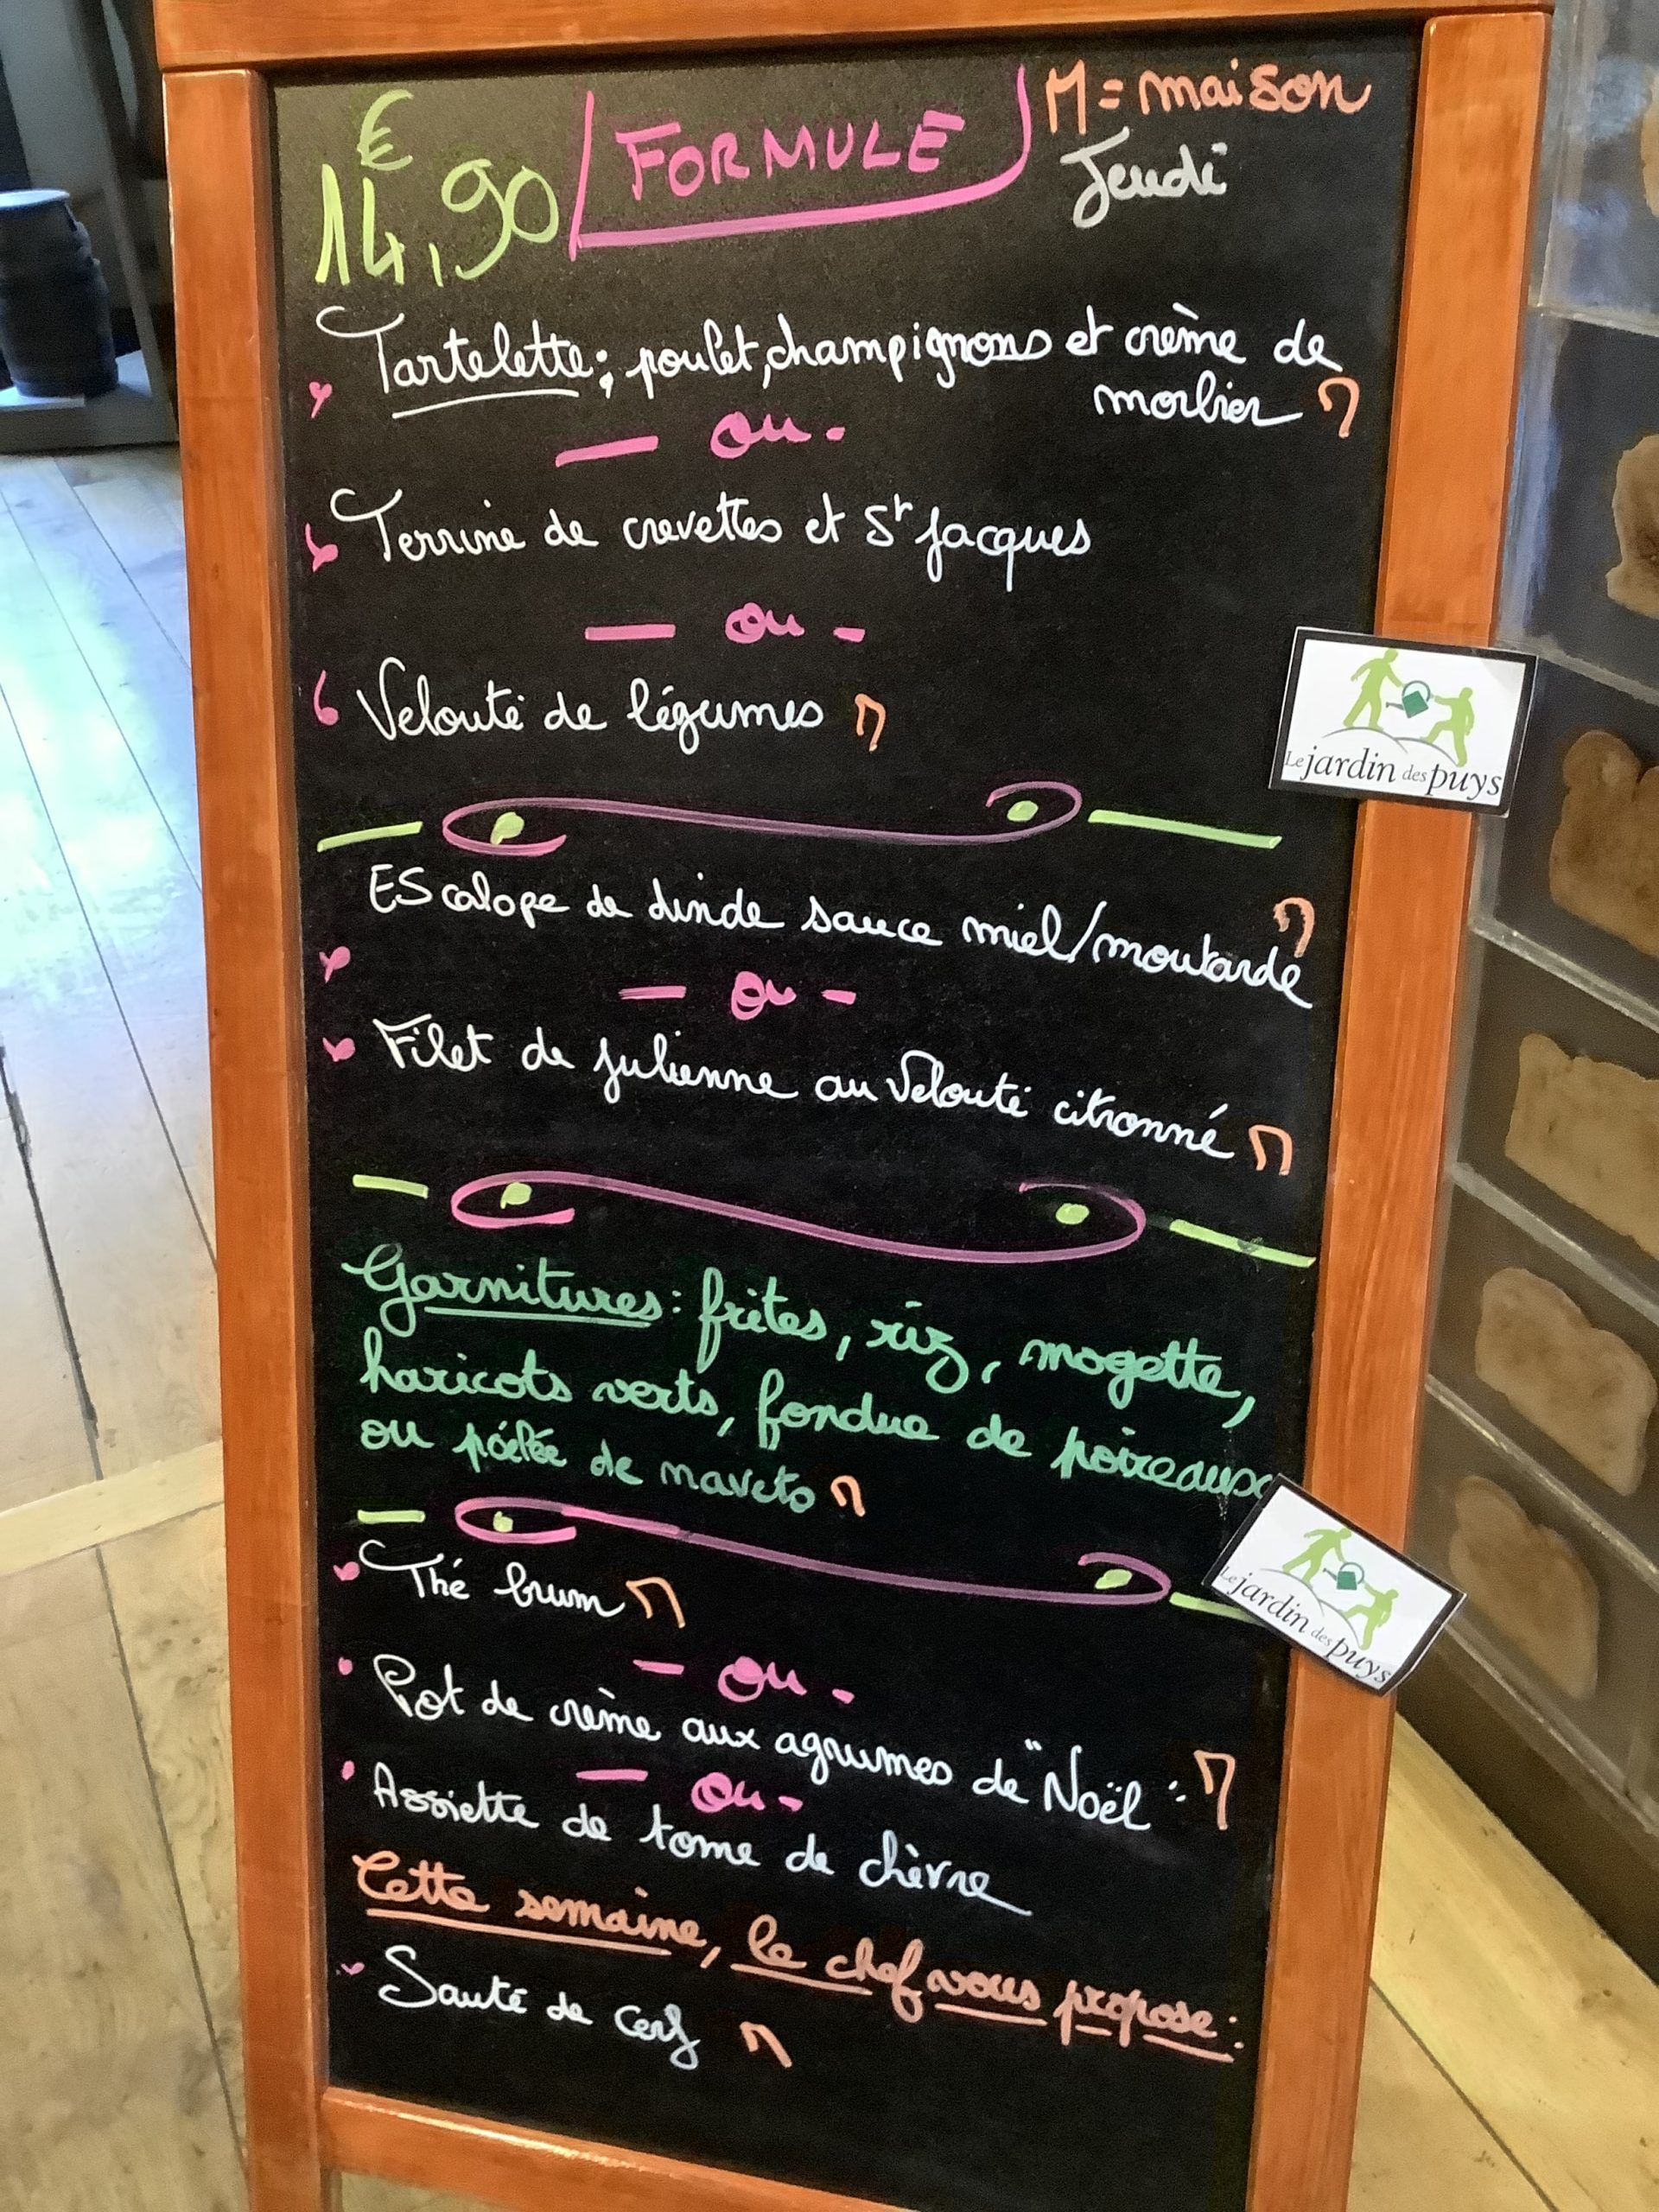 €
14,90 FORMULE
M = maison
Jeudi
Tartelette : poulet, champignons et crème de
morbier M
— ou -
Terrine de crevettes et St jacques
— ou -
Velouté de légumes M
Le jardin des puys
EScalope de dinde sauce miel/moutarde M
— ou -
Filet de julienne au Velouté citronné M
Garnitures : frites, riz, mogette,
haricots verts, fondue de poireaux
ou póélée de navets M
Le jardin des puys
Thé brum M
— ou -
Pot de crème aux agrumes de "Noël" M
— ou -
Assiette de tome de chèvre
Cette semaine, le chef vous propose :
Sauté de Cerf M